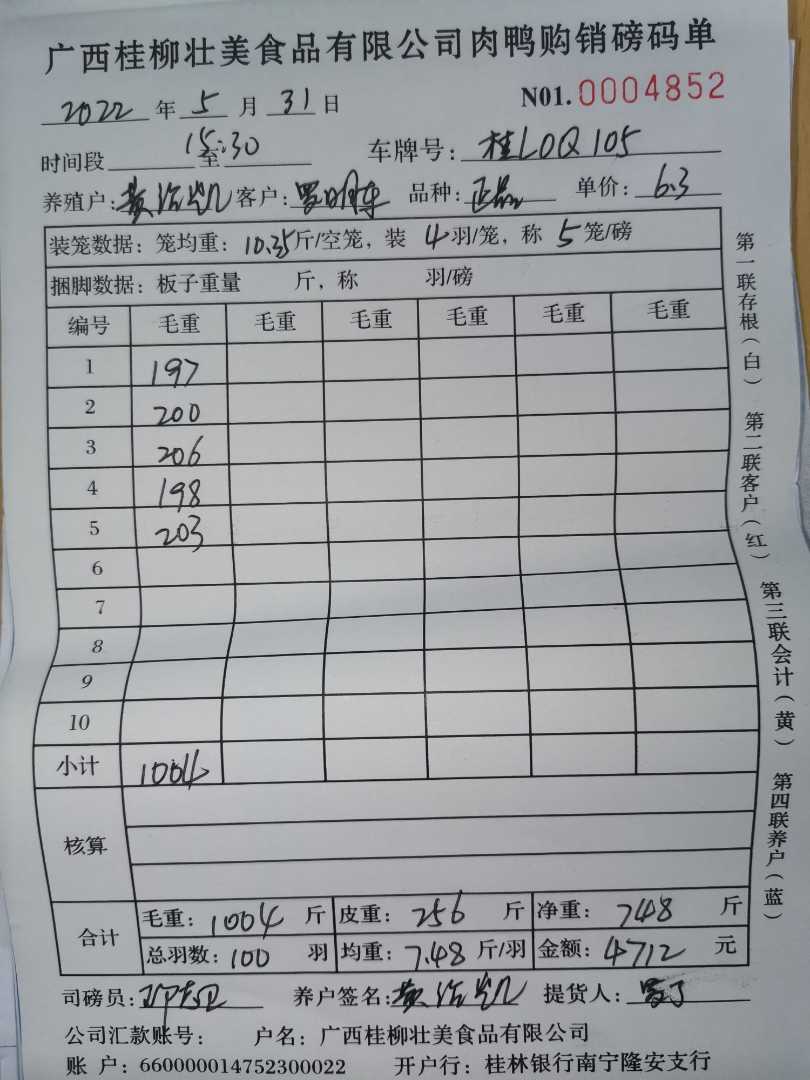 广西桂柳壮美食品有限公司肉鸭购销磅码单
2022 年 5 月 31 日 N01. 0004852
时间段 15:30 至 车牌号: 桂LOQ105
养殖户: 黄 凯 客户: 罗明 品种: 正品 单价: 6.3
装笼数据: 笼均重: 10.35 斤/空笼, 装 4 羽/笼, 称 5 笼/磅
捆脚数据: 板子重量 斤, 称 羽/磅
编号 毛重 毛重 毛重 毛重 毛重 毛重
1 197
2 200
3 206
4 198
5 203
6
7
8
9
10
小计 1004
核算
合计 毛重: 1004 斤 皮重: 256 斤 净重: 748 斤
总羽数: 100 羽 均重: 7.48 斤/羽 金额: 4712 元
司磅员: 养户签名: 黄 凯 提货人: 罗
公司汇款账号: 户名: 广西桂柳壮美食品有限公司
账 户: 660000014752300022 开户行: 桂林银行南宁隆安支行
第一联存根(白) 第二联客户(红) 第三联会计(黄) 第四联养户(蓝)